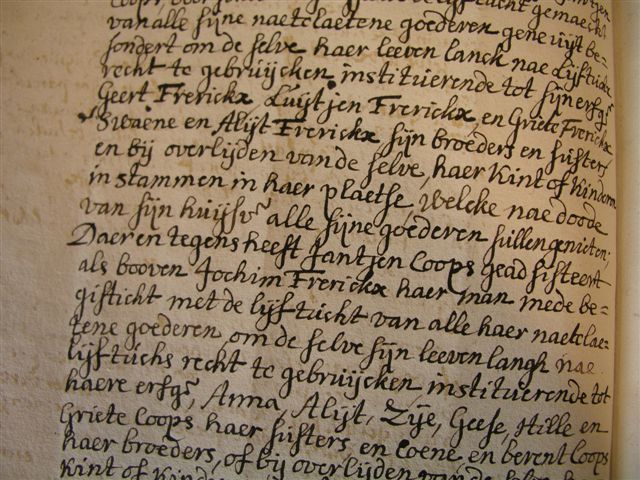 van alle sijne naetelaetene goederen gene uijt be-
sondert om de selve haer leeven lanck nae Lijftuchs
recht te gebruijcken instituerende tot sijn erfgr
Geert Frerickx Luijtjen Frerickx, en Griete Frerickx
Swaene en Alijt Frerickx sijn broeders en susters
en bij overlijden van de selve, haer Kint of Kinderen
in stammen in haer plaetse welcke nae doode
van sijn huijsvr alle sijne goederen sullen genieten;
Daer en tegens heeft Jantjen Coops geadsisteert
als booven Jochim Frerickx haer man mede be-
gifticht met de lijftucht van alle haer naetelae-
tene goederen om de selve sijn leeven langh nae
lijftuchs recht te gebruijcken instituerende tot
haere erfgr, Anna, Alijt, Zije, Geese, Hille en
Griete Coops haer susters, en Coene en berent Coops
haer broeders, of bij overlijden van de selve haer
Kint of